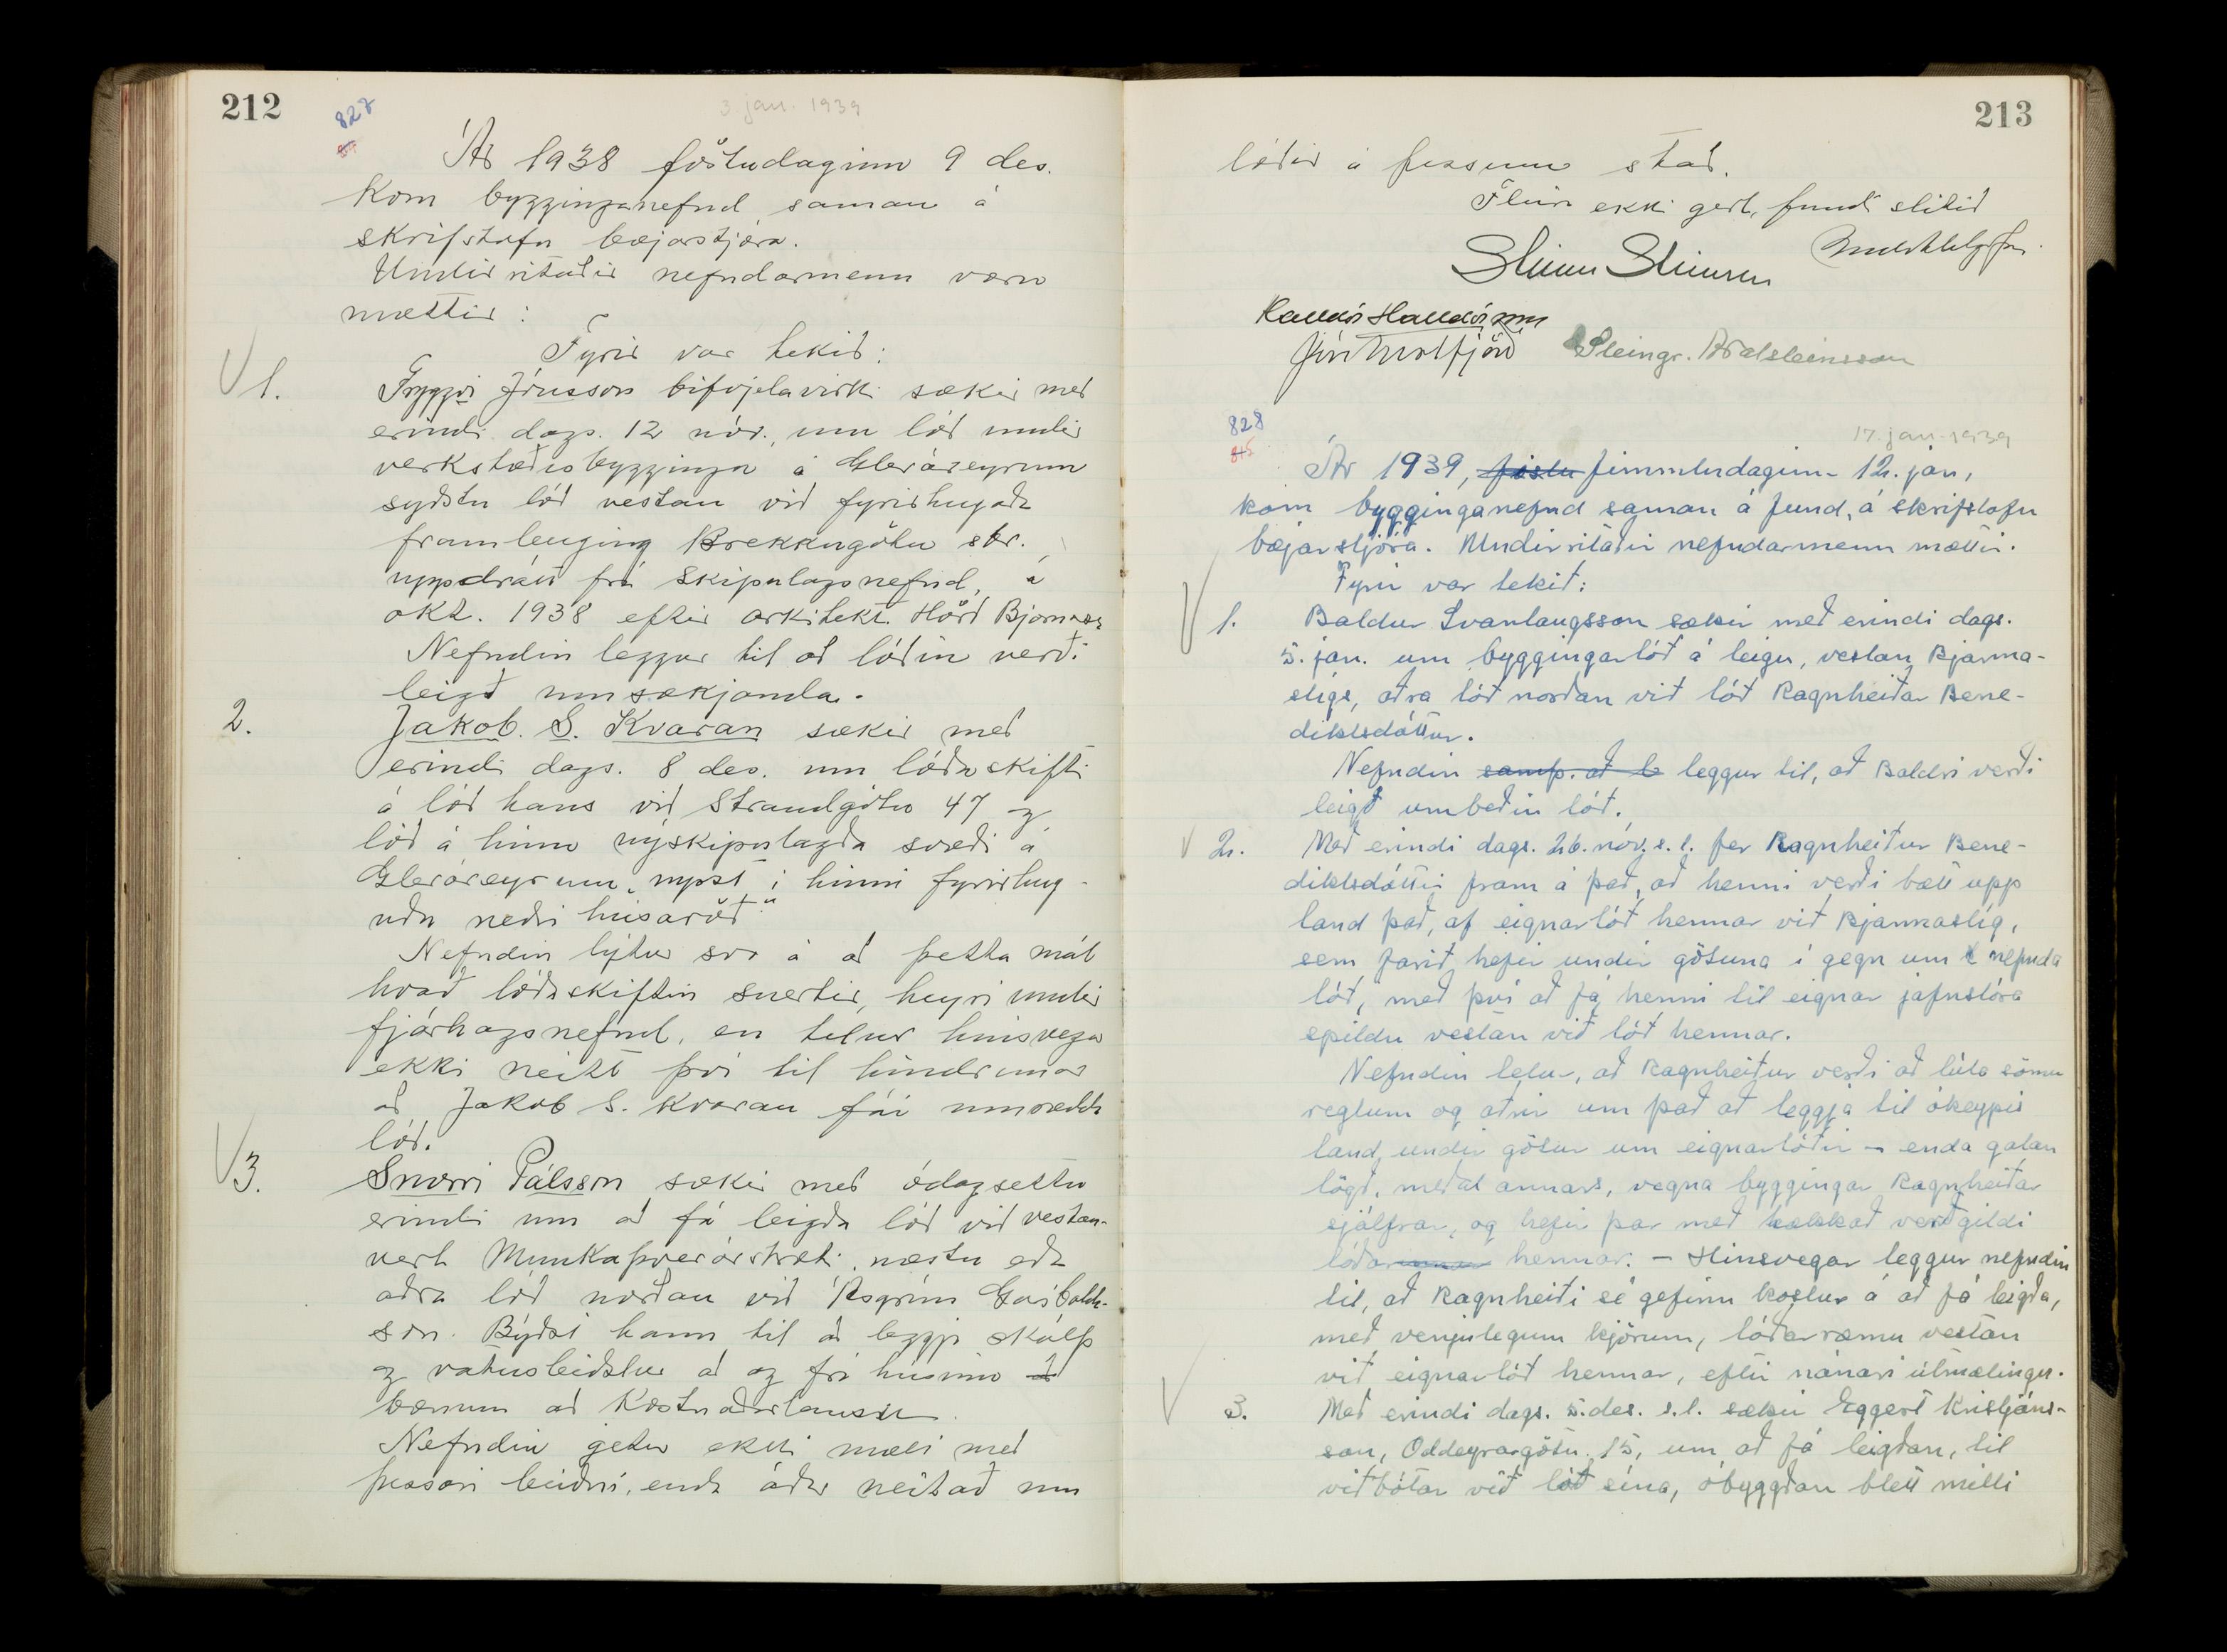 212
827
3. jan. 1939
Ár 1938 föstudaginn 9 des.
kom bygginganefnd saman á
skrifstofu bæjarstjóra.
Undirritaðir nefndarmenn voru
mættir:
Fyrir var tekið:
1. Tryggvi Jónsson bifvjelavirki sækir með
erindi dags. 12 nóv., um lóð undir
verkstæðisbyggingu á Gleráreyrum
syðstu lóð vestan við fyrirhugaða
framlenging Brekkugötu sbr.
uppdrátt frá Skipulagsnefnd, á
okt. 1938 eftir arkitekt. Hörð Bjarnas.
Nefndin leggur til að lóðin verði
leigð umsækjanda.
2. Jakob. S. Kvaran sækir með
erindi dags. 8 des. um lóðaskifti
á lóð hans við Strandgötu 47 og
lóð á hinu nýskipulagða svæði á
Gleráreyrum, nyrst í hinni fyrirhug-
uðu neðri húsaröð"
Nefndin lýtur svo á að þetta mál
hvað lóðaskiftin snertir, heyri undir
fjárhagsnefnd, en telur hinsvegar
ekki neitt því til hindrunar
að Jakob S. Kvaran fái umrædda
lóð.
3. Snorri Pálsson sækir með ódagsettu
erindi um að fá leigða lóð við vestan-
vert Munkaþverárstræti, næstu eða
aðra lóð norðan við Ásgrím Garibalda-
son. Býðst hann til að leggja skólp
og vatnsleiðslur að og frá húsinu að
bænum að kostnaðarlausu.
Nefndin getur ekki mælt með
þessari beiðni, enda áður neitað um
213
lóðir á þessum stað.
Fleira ekki gert, fundi slitið
Steinn Steinsen
Halldór Halldórsson
Steingr. Aðalsteinsson
828
17. jan. 1939
Ár 1939, föstu fimmtudaginn 12. jan,
kom bygginganefnd saman á fund, á skrifstofu
bæjarstjóra. Undirritaðir nefndarmenn mættir.
Fyrir var tekið:
1. Baldur Svanlaugsson sækir með erindi dags.
5. jan. um byggingarlóð á leigu, vestan Bjarma-
stígs, aðra lóð norðan við lóð Ragnheiðar Bene-
diktsdóttur.
Nefndin samþ. að l leggur til, að Baldri verði
leigð umbeðin lóð.
2. Með erindi dags. 26. nóv. s. l. fer Ragnheiður Bene-
diktsdóttir fram á það, að henni verði bætt upp
land það, af eignarlóð hennar við Bjarmastíg,
sem farið hefir undir götuna í gegn um nefnda
lóð, með því að fá henni til eignar jafnstóra
spildu vestan við lóð hennar.
Nefndin telur, að Ragnheiður verði að lúta sömu
reglum og aðrir um það að leggja til ókeypis
land undir götur um eignarlóðir – enda gatan
lögð, meðal annars, vegna byggingar Ragnheiðar
sjálfrar, og hefir þar með hækkað verðgildi
lóðar hennar. – Hinsvegar leggur nefndin
til, að Ragnheiði sé gefinn kostur á að fá leigða,
með venjulegum kjörum, lóðarræmu vestan
við eignarlóð hennar, eftir nánari útmælingu.
3. Með erindi dags. 5. des. s.l. sækir Eggert Kristjáns-
son, Oddeyrargötu 15, um að fá leigðan, til
viðbótar við lóð sína, óbyggðan blett milli